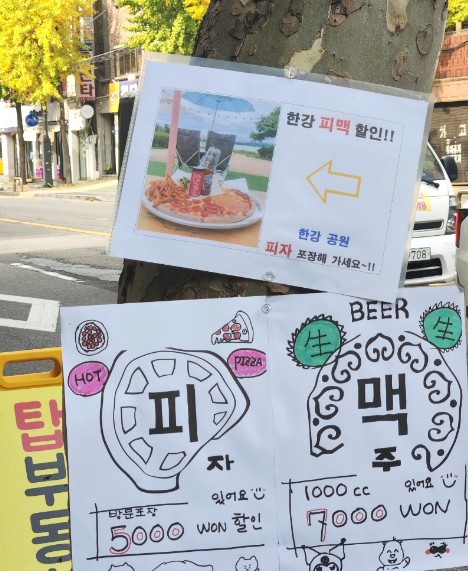 한강 피맥 할인!!
한강 공원
피자 포장해 가세요~!!
HOT
PIZZA
피
자
있어요
방문포장
5000 WON 할인
BEER
生
生
맥
주
1000 cc
있어요
7000 WON
탑
부
동
708